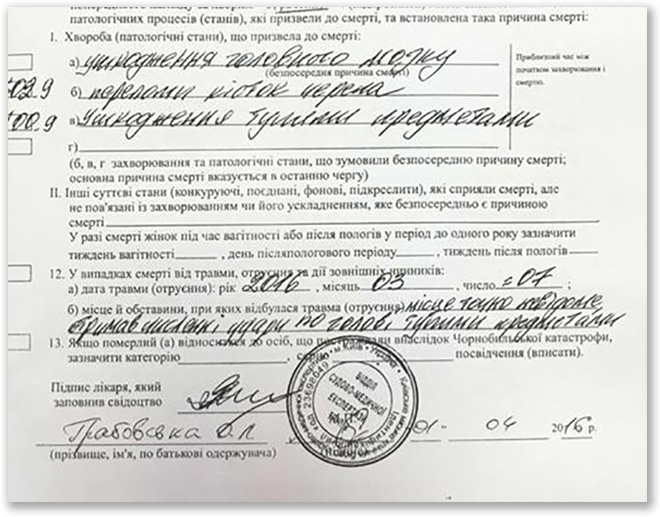 патологічних процесів (станів), які призвели до смерті, та встановлена така причина смерті:
I. Хвороба (патологічні стани), що призвела до смерті:
а) ушкодження головного мозку
(безпосередня причина смерті)
б) переломи кісток черепа
в) Ушкодження тупими предметами
г)
Приблизний час між
початком захворювання і
смертю.
(б, в, г захворювання та патологічні стани, що зумовили безпосередню причину смерті;
основна причина смерті вказується в останню чергу)
II. Інші суттєві стани (конкуруючі, поєднані, фонові, підкреслити), які сприяли смерті, але
не пов'язані із захворюванням чи його ускладненням, яке безпосередньо є причиною
смерті
У разі смерті жінок під час вагітності або після пологів у період до одного року зазначити
тиждень вагітності, день післяпологового періоду, тиждень після пологів
12. У випадках смерті від травми, отруєння та дії зовнішніх чинників:
а) дата травми (отруєння): рік 2016, місяць 03, число 07;
б) місце й обставини, при яких відбулася травма (отруєння) місце точно невідоме
отримав численні удари по голові тупими предметами
13. Якщо померлий (а) відноситься до осіб, що постраждали внаслідок Чорнобильської катастрофи,
зазначити категорію, серію посвідчення (вписати).
Підпис лікаря, який
заповнив свідоцтво
ВІДДІЛ
СУДОВО-МЕДИЧНОЇ
ЕКСПЕРТИЗИ
23698049
м.Київ
Україна
Грабовська О.Л
01 04 2016 р.
(прізвище, ім'я, по батькові одержувача)